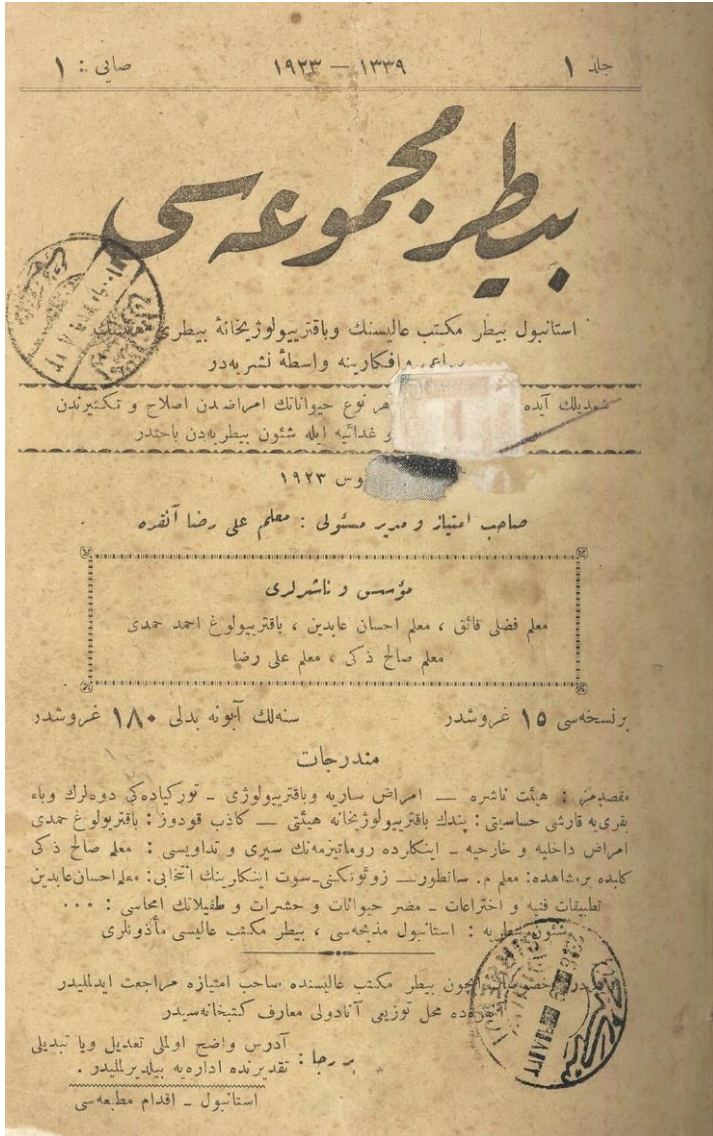 جلد ١
١٣٣٩ — ١٩٢٣
صايى : ١
بيطر مجموعه‌سى
استانبول بيطر مكتب عاليسنك وباقتريولوژيخانهٔ بيطرى
وافكارينه واسطهٔ نشريه‌در
شمديلك آيده هر نوع حيواناتك امراضدن اصلاح و تكثيرندن
و غدائيه ايله شئون بيطريه‌دن باحثدر
وس ١٩٢٣
صاحب امتياز و مدير مسئولى : معلم على رضا آنقره
مؤسس و ناشرلرى
معلم فضلى فائق ، معلم احسان عابدين ، باقتريولوغ احمد حمدى
معلم صالح ذكى ، معلم على رضا
برنسخه‌سى ١٥ غروشدر
سنه‌لك آبونه بدلى ١٨٠ غروشدر
مندرجات
مقصدمز : هيئت ناشره — امراض ساريه وباقتريولوژى ـ توركياده‌كى دوه‌لرك وباء
بقرى‌يه قارشى حساسيتى : پندك باقتريولوژيخانه هيئتى — كاذب قودوز : باقتريولوغ حمدى
امراض داخليه و خارجيه ـ اينكلرده روماتيزمه‌نك سيرى و تداويسى : معلم صالح ذكى
كابده برمشاهده : معلم م. سانطور — زوئوتكنى ـ سوت اينكلرينك انتخابى : معلم احسان عابدين
تطبيقات فنيه و اختراعات ـ مضر حيوانات و حشرات و طفيلاتك امحاسى : ٠٠٠
شئون بيطريه : استانبول مذبحه‌سى ، بيطر مكتب عاليسى مأذونلرى
ايچون بيطر مكتب عاليسنده صاحب امتيازه مراجعت ايدلمليدر
محل توزيعى آنادولى معارف كتبخانه‌سيدر
بر رجا : آدرس واضح اولملى تعديل ويا تبديلى
تقديرنده اداره‌يه بيلديرلمليدر .
استانبول ـ اقدام مطبعه‌سى